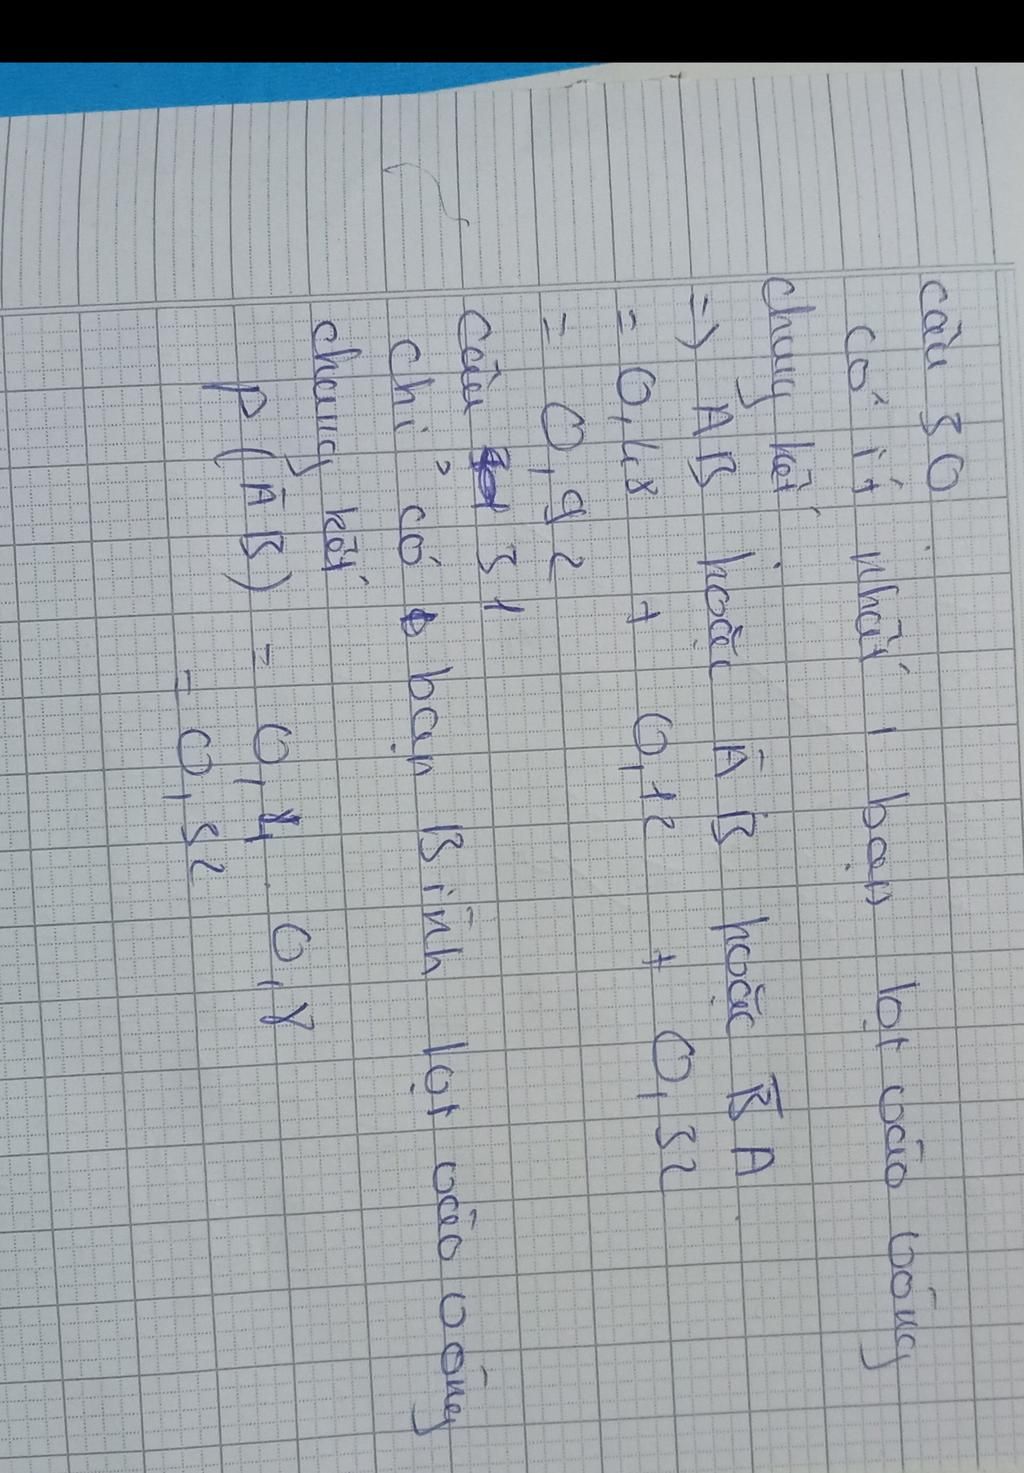 Câu 30
có ít nhất 1 bạn lọt vào vòng
chung kết
=> AB hoặc ĀB hoặc B̄A
= 0,48 + 0,12 + 0,32
= 0,92
Câu 31
chỉ có bạn Bình lọt vào vòng
chung kết
P(ĀB) = 0,4 . 0,8
= 0,32